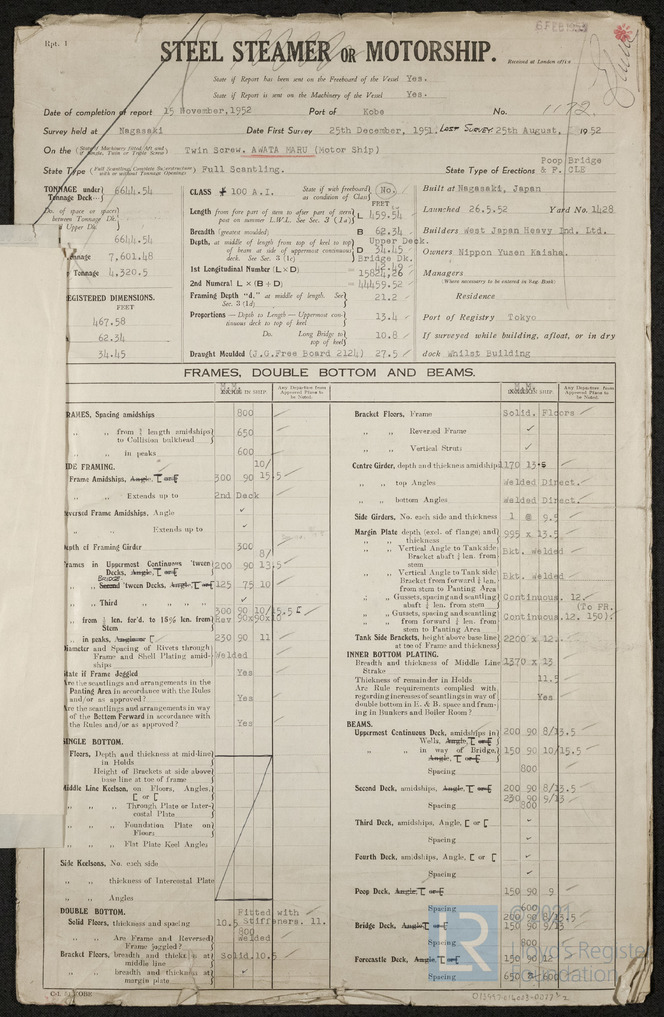 6 FEB 1953
Rpt. 1
STEEL STEAMER OR MOTORSHIP.
Received at London office
State if Report has been sent on the Freeboard of the Vessel Yes.
State if Report is sent on the Machinery of the Vessel Yes.
Date of completion of report 15 November, 1952 Port of Kobe No. 1172.
Survey held at Nagasaki Date First Survey 25th December, 1951. Last Survey 25th August, 1952
On the (State if Machinery fitted Aft and if Single, Twin or Triple Screw) Twin Screw. AWATA MARU (Motor Ship)
State Type (Full Scantling, Complete Superstructure with or without Tonnage Openings) Full Scantling. State Type of Erections Poop Bridge & F. CLE
TONNAGE under Tonnage Deck 6644.54
Do. of space or spaces between Tonnage Dk. Upper Dk.
6644.54
nnage 7,601.48
Tonnage 4,320.5
REGISTERED DIMENSIONS.
FEET
467.58
62.34
34.45
CLASS 100 A.I. State if with freeboard as condition of Class No.
FEET
Length from fore part of stem to after part of stern post on summer L.W.L. See Sec. 3 (1a) L 459.54
Breadth (greatest moulded) B 62.34
Upper Deck.
Depth, at middle of length from top of keel to top of beam at side of uppermost continuous deck. See Sec. 3 (1c) D 34.45
Bridge Dk.
42.49
1st Longitudinal Number (L × D) = 15824.26
2nd Numeral L × (B + D) = 44459.52
Framing Depth "d," at middle of length. See Sec. 3 (1d) 21.2
Proportions — Depth to Length — Uppermost continuous deck to top of keel 13.4
Do. Long Bridge to top of keel 10.8
Draught Moulded (J.G. Free Board 2124) 27.5
Built at Nagasaki, Japan
Launched 26.5.52 Yard No. 1428
Builders West Japan Heavy Ind. Ltd.
Owners Nippon Yusen Kaisha.
Managers
(Where necessary to be entered in Reg. Book)
Residence
Port of Registry Tokyo
If surveyed while building, afloat, or in dry
dock Whilst Building
FRAMES, DOUBLE BOTTOM AND BEAMS.
IN SHIP. Any Departure from Approved Plans to be Noted.
RAMES, Spacing amidships 800
„ „ from ¾ length amidships to Collision bulkhead 650
„ „ in peaks 600
IDE FRAMING.
Frame Amidships, Angle, [ or [ 300 90 10/15.5
„ „ Extends up to 2nd Deck
eversed Frame Amidships, Angle
„ „ Extends up to
epth of Framing Girder 300
rames in Uppermost Continuous 'tween Decks, Angle, [ or [ 200 90 8/13.5
BRIDGE
„ Second 'tween Decks, Angle, [ or [ 125 75 10
„ Third „ „ „ „
„ from ¾ len. for'd. to 15% len. from Stem 300 90 10/15.5 [
Rev 90x90x10
„ in peaks, Angle or [ 230 90 11
iameter and Spacing of Rivets through Frame and Shell Plating amidships Welded
State if Frame Joggled Yes
Are the scantlings and arrangements in the Panting Area in accordance with the Rules and/or as approved? Yes
Are the scantlings and arrangements in way of the Bottom Forward in accordance with the Rules and/or as approved? Yes
SINGLE BOTTOM.
Floors, Depth and thickness at mid-line in Holds
Height of Brackets at side above base line at toe of frame
Middle Line Keelson, on Floors, Angles, [ or [
„ „ Through Plate or Intercostal Plate
„ „ Foundation Plate on Floors
„ „ Flat Plate Keel Angles
Side Keelsons, No. each side
„ „ thickness of Intercostal Plate
„ „ Angles
DOUBLE BOTTOM.
Fitted with
Solid Floors, thickness and spacing 10.5 Stiffeners. 11.
800
„ „ Are Frame and Reversed Frame joggled? Welded
Bracket Floors, breadth and thickness at middle line Solid.10.5
„ „ breadth and thickness at margin plate
Bracket Floors, Frame Solid. Floors
„ „ Reversed Frame
„ „ Vertical Struts
Centre Girder, depth and thickness amidships 1170 13.5
„ „ top Angles Welded Direct.
„ „ bottom Angles Welded Direct.
Side Girders, No. each side and thickness 1 @ 9.5
Margin Plate depth (excl. of flange) and thickness 995 x 13.5
„ „ Vertical Angle to Tank side Bracket abaft ¼ len. from stem Bkt. Welded
„ „ Vertical Angle to Tank side Bracket from forward ¼ len. from stem to Panting Area Bkt. Welded
„ „ Gussets, spacing and scantling abaft ¼ len. from stem Continuous. 12.
(To FR. 150).
„ „ Gussets, spacing and scantling from forward ¼ len. from stem to Panting Area Continuous. 12.
Tank Side Brackets, height above base line at toe of Frame and thickness 2200 x 12.
INNER BOTTOM PLATING.
Breadth and thickness of Middle Line Strake 1370 x 13
Thickness of remainder in Holds 11.5
Are Rule requirements complied with regarding increases of scantlings in way of double bottom in E. & B. space and framing in Bunkers and Boiler Room? Yes
BEAMS.
Uppermost Continuous Deck, amidships in Wells, Angle, [ or [ 200 90 8/13.5
„ „ in way of Bridge, Angle, [ or [ 150 90 10/15.5
Spacing 800
Second Deck, amidships, Angle, [ or [ 200 90 8/13.5
230 90 9/13
Spacing 800
Third Deck, amidships, Angle, [ or [
Spacing
Fourth Deck, amidships, Angle, [ or [
Spacing
Poop Deck, Angle, [ or [ 150 90 9
Spacing 600
200 90 8/13.5
Bridge Deck, Angle, [ or [ 150 90 9/13
Spacing 800
Forecastle Deck, Angle, [ or [ 150 90 12
Spacing 650 & 600
© 2021
LR
Lloyd's Register
Foundation